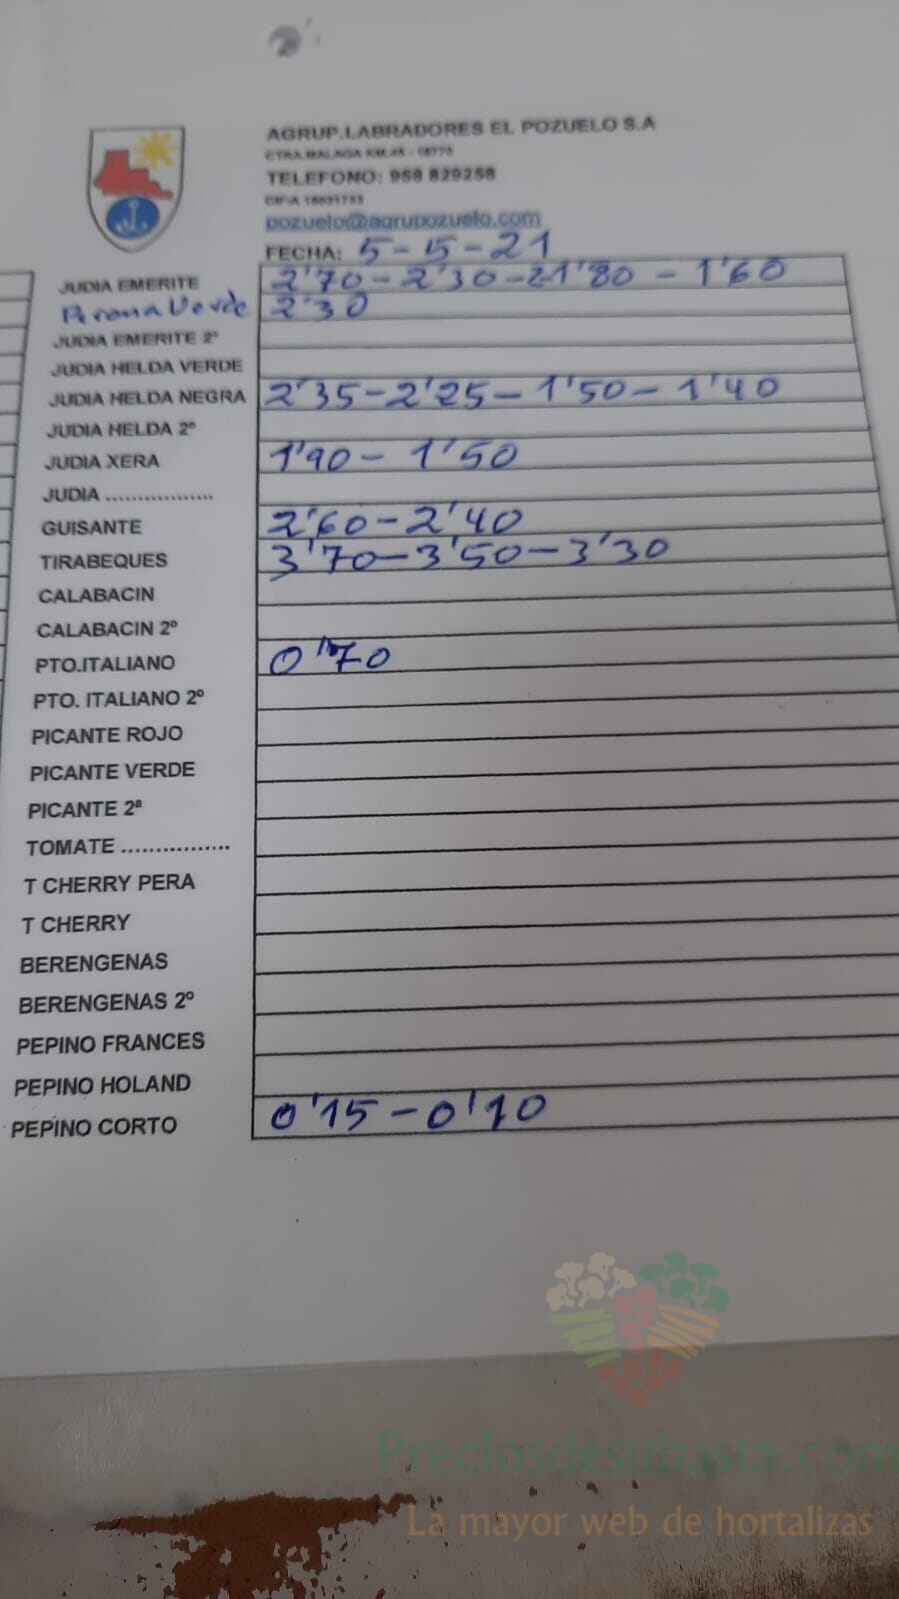 AGRUP.LABRADORES EL POZUELO S.A
CTRA.MALAGA KM.45 - 18770
TELEFONO: 958 829258
CIF:A 18051753
pozuelo@agrupozuelo.com
FECHA: 5-5-21
JUDIA EMERITE 2'70-2'30-2-1'80-1'60
Perona Verde 2'30
JUDIA EMERITE 2º
JUDIA HELDA VERDE
JUDIA HELDA NEGRA 2'35-2'25-1'50-1'40
JUDIA HELDA 2º
JUDIA XERA 1'90-1'50
JUDIA .................
GUISANTE 2'60-2'40
TIRABEQUES 3'70-3'50-3'30
CALABACIN
CALABACIN 2º
PTO.ITALIANO 0'70
PTO. ITALIANO 2º
PICANTE ROJO
PICANTE VERDE
PICANTE 2ª
TOMATE ................
T CHERRY PERA
T CHERRY
BERENGENAS
BERENGENAS 2º
PEPINO FRANCES
PEPINO HOLAND
PEPINO CORTO 0'15-0'10
Preciosdesubasta.com
La mayor web de hortalizas